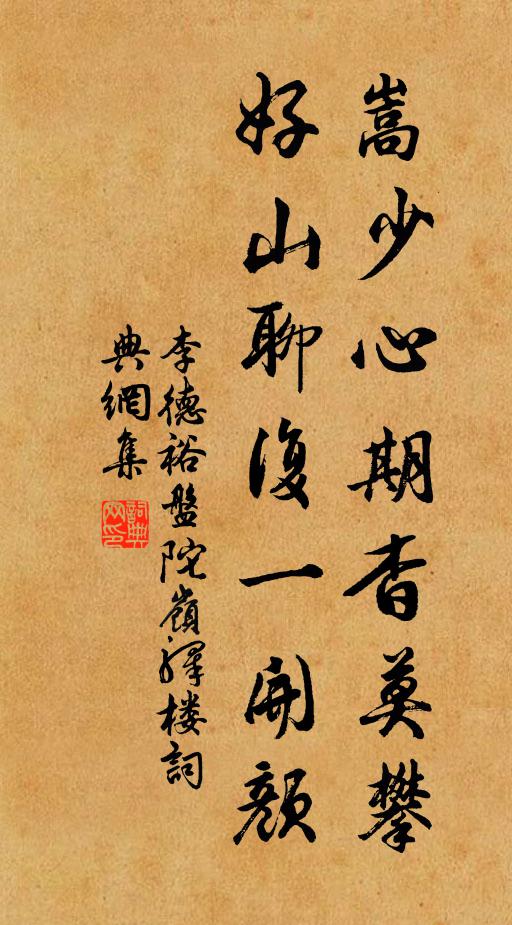 嵩少心期杳莫攀
好山聊復一開顏
李德裕盤陀嶺驛樓詞
典網集
詞典
网印